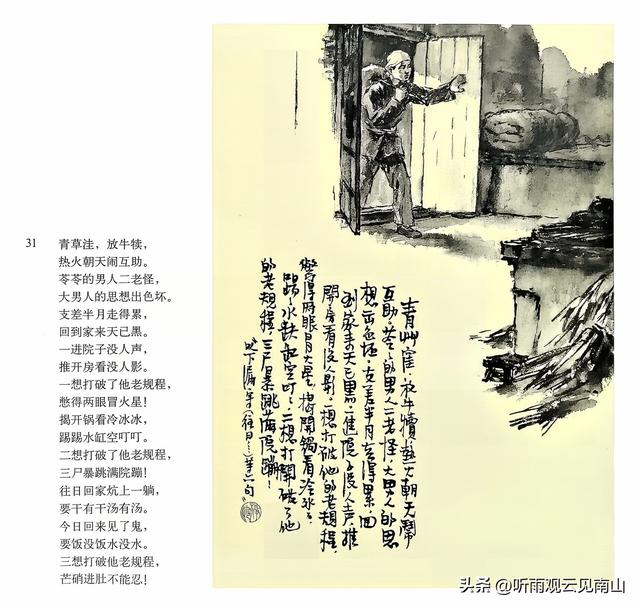 31
青草洼，放牛犊，
热火朝天闹互助。
苓苓的男人二老怪，
大男人的思想出色坏。
支差半月走得累，
回到家来天已黑。
一进院子没人声，
推开房看没人影。
一想打破了他老规程，
憋得两眼冒火星！
揭开锅看冷冰冰，
踢踢水缸空叮叮。
二想打破了他老规程，
三尸暴跳满院蹦！
往日回家炕上一躺，
要干有干汤有汤。
今日回来见了鬼，
要饭没饭水没水。
三想打破他老规程，
芒硝进肚不能忍！
青艸窪，放牛犊，热火朝天闹
互助。苓苓的男人二老怪，大男人的思
想出色坏。支差半月走得累，回
到家来天已黑。一進院子没人声，推
開房看没人影。一想打破他的老规程，
憋得两眼冒火星。揭開锅看冷冰冰，
踢踢水缸空叮叮。二想打破了他
的老规程，三尸暴跳满院蹦！
头条 @听雨观云见南山